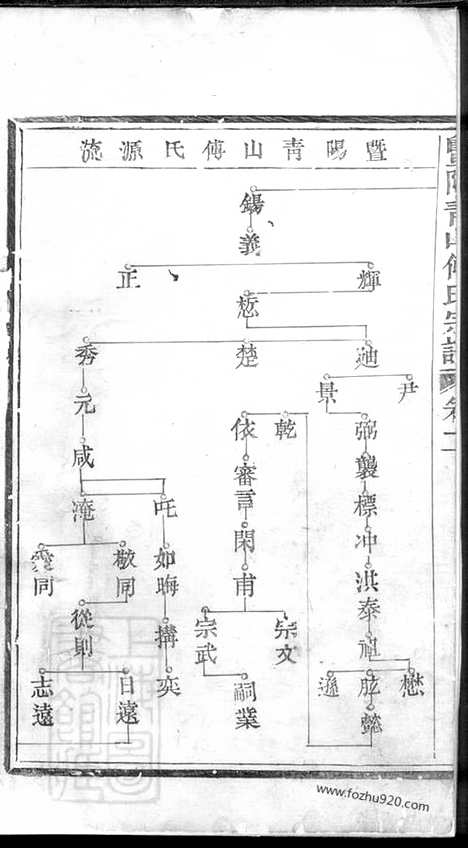 暨陽青山傅氏源流
暨陽青山傅氏宗譜 卷二
錫
義
輝
正
惁
迪
楚
秀
尹
景
弼
襲
標
冲
洪
泰
祖
懋
肱
遜
懿
乾
依
審言
閑
甫
宗文
宗武
嗣業
元
咸
淹
吒
如晦
搆
奕
敬同
同
從則
日遠
志遠
www.fozhu920.com